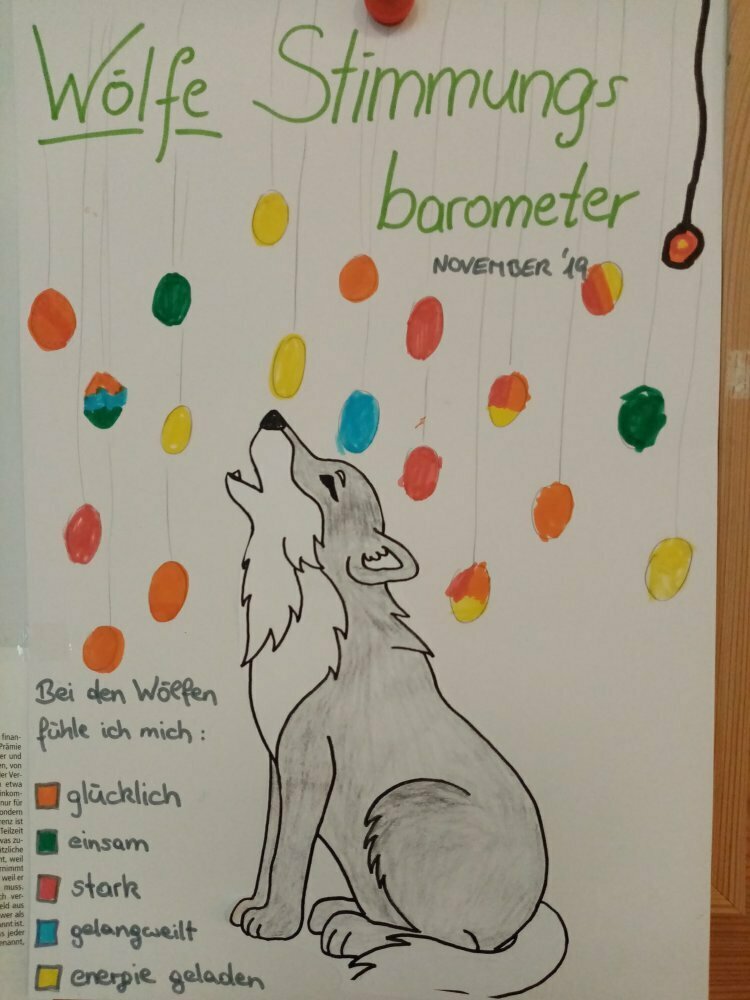 Wölfe Stimmungs
barometer
NOVEMBER '19
Bei den Wölfen
fühle ich mich :
glücklich
einsam
stark
gelangweilt
energie geladen
finan-
Prämie
er und
en, von
der Ver-
etwa
inkom-
nur für
ondern
renz ist
Teilzeit
was zu-
itzliche
nt, weil
rnimmt
weil er
muss.
ch ver-
eld aus
wer als
annt ist.
ss jeder
enannt,